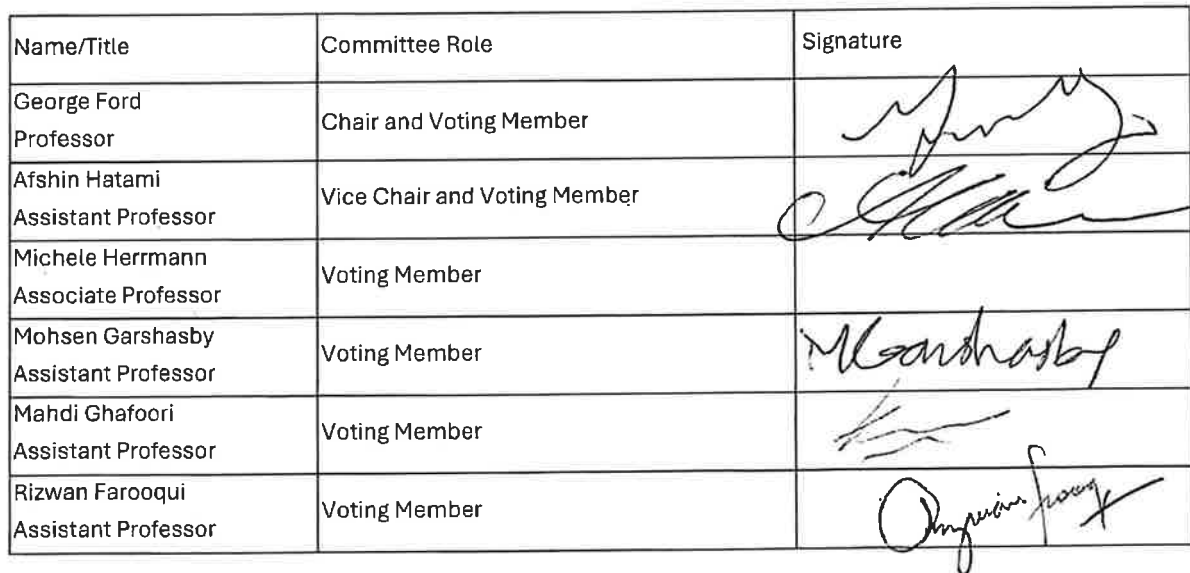 Name/Title Committee Role Signature
George Ford
Professor
Chair and Voting Member
Afshin Hatami
Assistant Professor
Vice Chair and Voting Member
Michele Herrmann
Associate Professor
Voting Member
Mohsen Garshasby
Assistant Professor
Voting Member
MGarshasby
Mahdi Ghafoori
Assistant Professor
Voting Member
Rizwan Farooqui
Assistant Professor
Voting Member